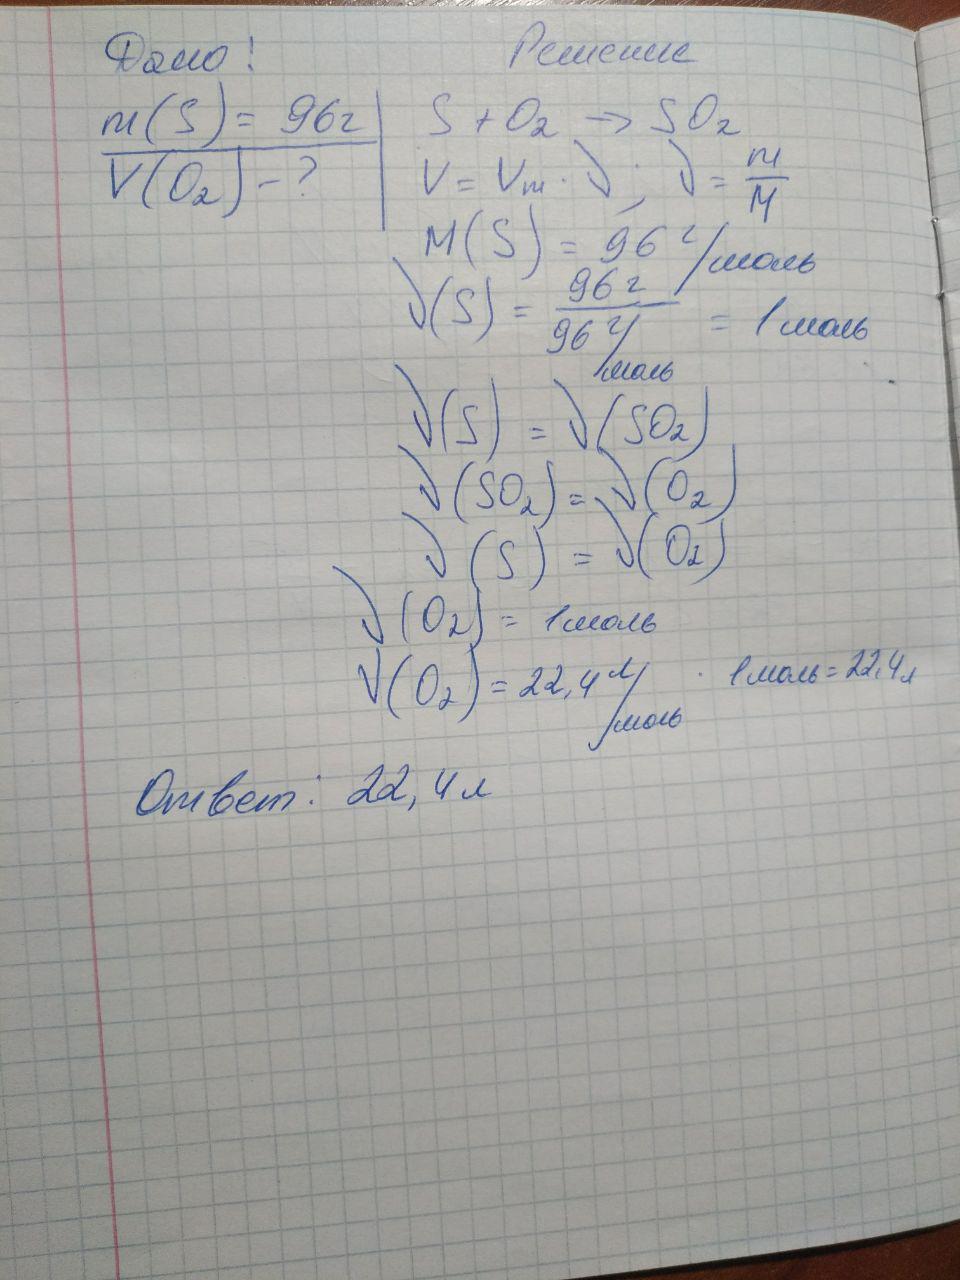 Дано! Решение
m(S) = 96г S + O₂ → SO₂
V(O₂) – ? V = Vm · ν ; ν = m/M
M(S) = 96 г/моль
ν(S) = 96 г / 96 г/моль = 1 моль
ν(S) = ν(SO₂)
ν(SO₂) = ν(O₂)
ν(S) = ν(O₂)
ν(O₂) = 1 моль
V(O₂) = 22,4 л/моль · 1 моль = 22,4 л
Ответ: 22,4 л